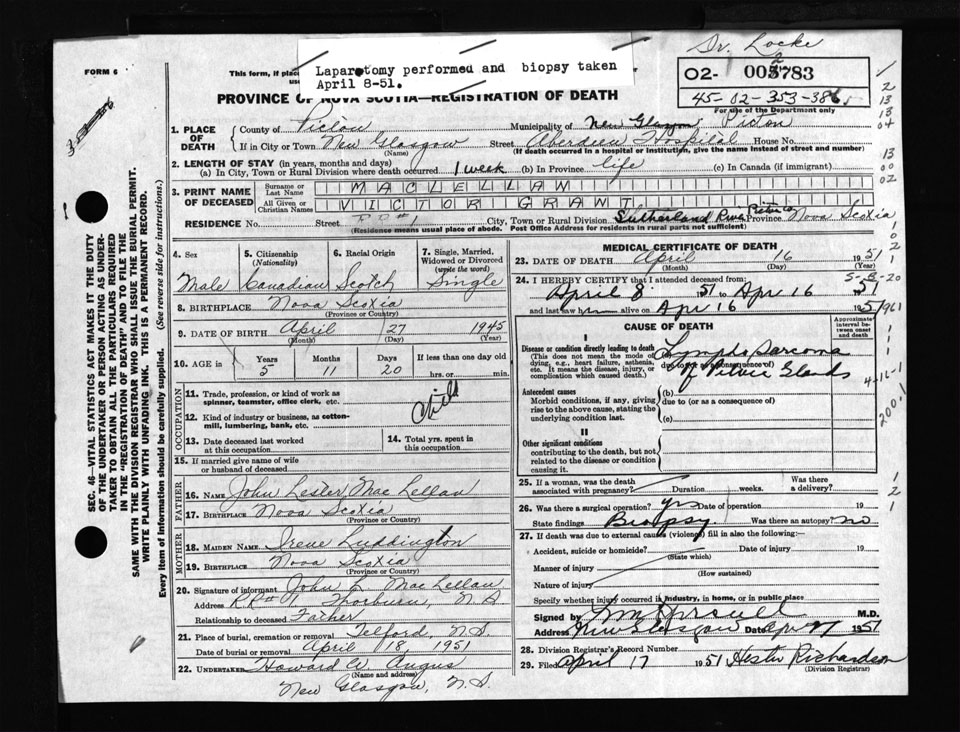 Dr. Locke
FORM 6
This form, if place
Laparotomy performed and biopsy taken
April 8-51.
02- 003783
45-02-353-386
For use of the Department only
PROVINCE OF NOVA SCOTIA—REGISTRATION OF DEATH
1. PLACE OF DEATH
County of Pictou Municipality of New Glasgow Pictou
If in City or Town New Glasgow (Name) Street Aberdeen Hospital House No.
(If death occurred in a hospital or institution, give the name instead of street and number)
2. LENGTH OF STAY (in years, months and days)
(a) In City, Town or Rural Division where death occurred 1 week (b) In Province life (c) In Canada (if immigrant)
3. PRINT NAME OF DECEASED
Surname or Last Name MACLELLAN
All Given or Christian Names VICTOR GRANT
RESIDENCE No. Street RR#1 City, Town or Rural Division Sutherland River Pictou Co Province Nova Scotia
(Residence means usual place of abode. Post Office Address for residents in rural parts not sufficient)
4. Sex Male
5. Citizenship (Nationality) Canadian
6. Racial Origin Scotch
7. Single, Married, Widowed or Divorced (write the word) Single
8. BIRTHPLACE Nova Scotia
(Province or Country)
9. DATE OF BIRTH April 27 1945
(Month) (Day) (Year)
10. AGE in Years 5 Months 11 Days 20 If less than one day old hrs. or min.
OCCUPATION
11. Trade, profession, or kind of work as spinner, teamster, office clerk, etc. Child
12. Kind of industry or business, as cotton-mill, lumbering, bank, etc.
13. Date deceased last worked at this occupation
14. Total yrs. spent in this occupation
15. If married give name of wife or husband of deceased
FATHER
16. NAME John Lester MacLellan
17. BIRTHPLACE Nova Scotia
(Province or Country)
MOTHER
18. MAIDEN NAME Irene Luddington
19. BIRTHPLACE Nova Scotia
(Province or Country)
20. Signature of informant John L. MacLellan
Address RR#1 Thorburn, N.S
Relationship to deceased Father
21. Place of burial, cremation or removal Telford, N.S.
Date of burial or removal April 18, 1951
22. UNDERTAKER Howard W. Angus
(Name and address)
New Glasgow, N.S.
MEDICAL CERTIFICATE OF DEATH
23. DATE OF DEATH April 16 1951
(Month) (Day) (Year)
24. I HEREBY CERTIFY that I attended deceased from:
April 8 1951 to Apr 16 1951
and last saw him alive on Apr 16 1951
CAUSE OF DEATH
Approximate interval between onset and death
I
Disease or condition directly leading to death
(This does not mean the mode of dying, e.g., heart failure, asthenia, etc. It means the disease, injury, or complication which caused death.)
Lympho Sarcoma
due to (or as a consequence of)
of Pelvic Glands
Antecedent causes
Morbid conditions, if any, giving rise to the above cause, stating the underlying condition last.
(b)
due to (or as a consequence of)
(c)
II
Other significant conditions contributing to the death, but not related to the disease or condition causing it.
25. If a woman, was the death associated with pregnancy? Duration weeks. Was there a delivery?
26. Was there a surgical operation? yes Date of operation 19
State findings Biopsy Was there an autopsy? no
27. If death was due to external causes (violence) fill in also the following:—
Accident, suicide or homicide? Date of injury 19
(State which)
Manner of injury
(How sustained)
Nature of injury
Specify whether injury occurred in industry, in home, or in public place
Signed by M.D.
Address New Glasgow Date 1951
28. Division Registrar's Record Number
29. Filed April 17 1951 Hester Richardson
(Division Registrar)
SEC. 46—VITAL STATISTICS ACT MAKES IT THE DUTY OF THE UNDERTAKER OR PERSON ACTING AS UNDERTAKER TO OBTAIN ALL THE PARTICULARS REQUIRED IN THE "REGISTRATION OF DEATH" AND TO FILE THE SAME WITH THE DIVISION REGISTRAR WHO SHALL ISSUE THE BURIAL PERMIT.
WRITE PLAINLY WITH UNFADING INK. THIS IS A PERMANENT RECORD.
Every item of information should be carefully supplied. (See reverse side for instructions.)